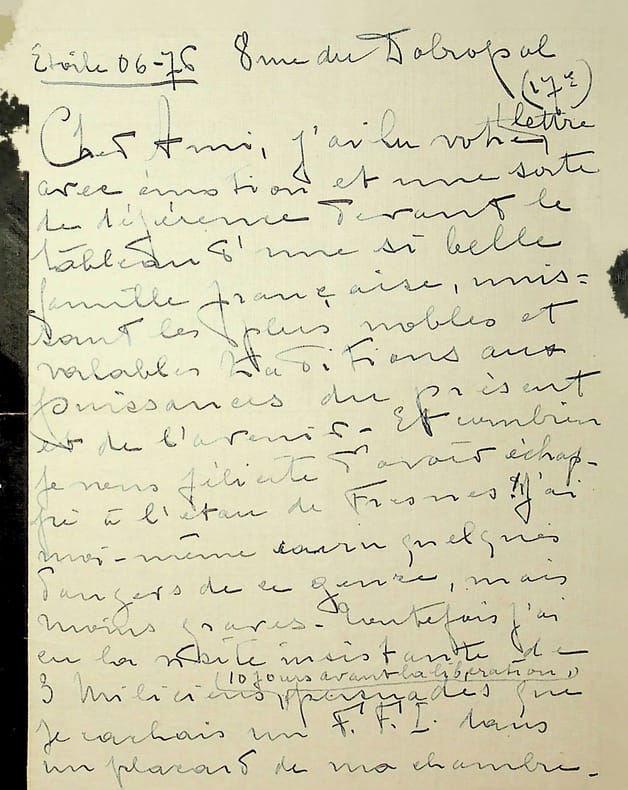 Étoile 06-76 8 rue du Dobropol
(17e)
Cher Ami, j'ai lu votre lettre
avec émotion et une sorte
de déférence devant le
tableau d'une si belle
famille française, unis=
sant les plus nobles et
valables traditions aux
puissances du présent
et de l'avenir - Et combien
je vous félicite d'avoir échap-
pé à l'étau de Fresnes! J'ai
moi-même couru quelques
dangers de ce genre, mais
moins graves - Toutefois j'ai
eu la visite insistante de
(10 jours avant la libération,)
3 Miliciens, persuadés que
je cachais un F.F.I. dans
un placard de ma chambre -